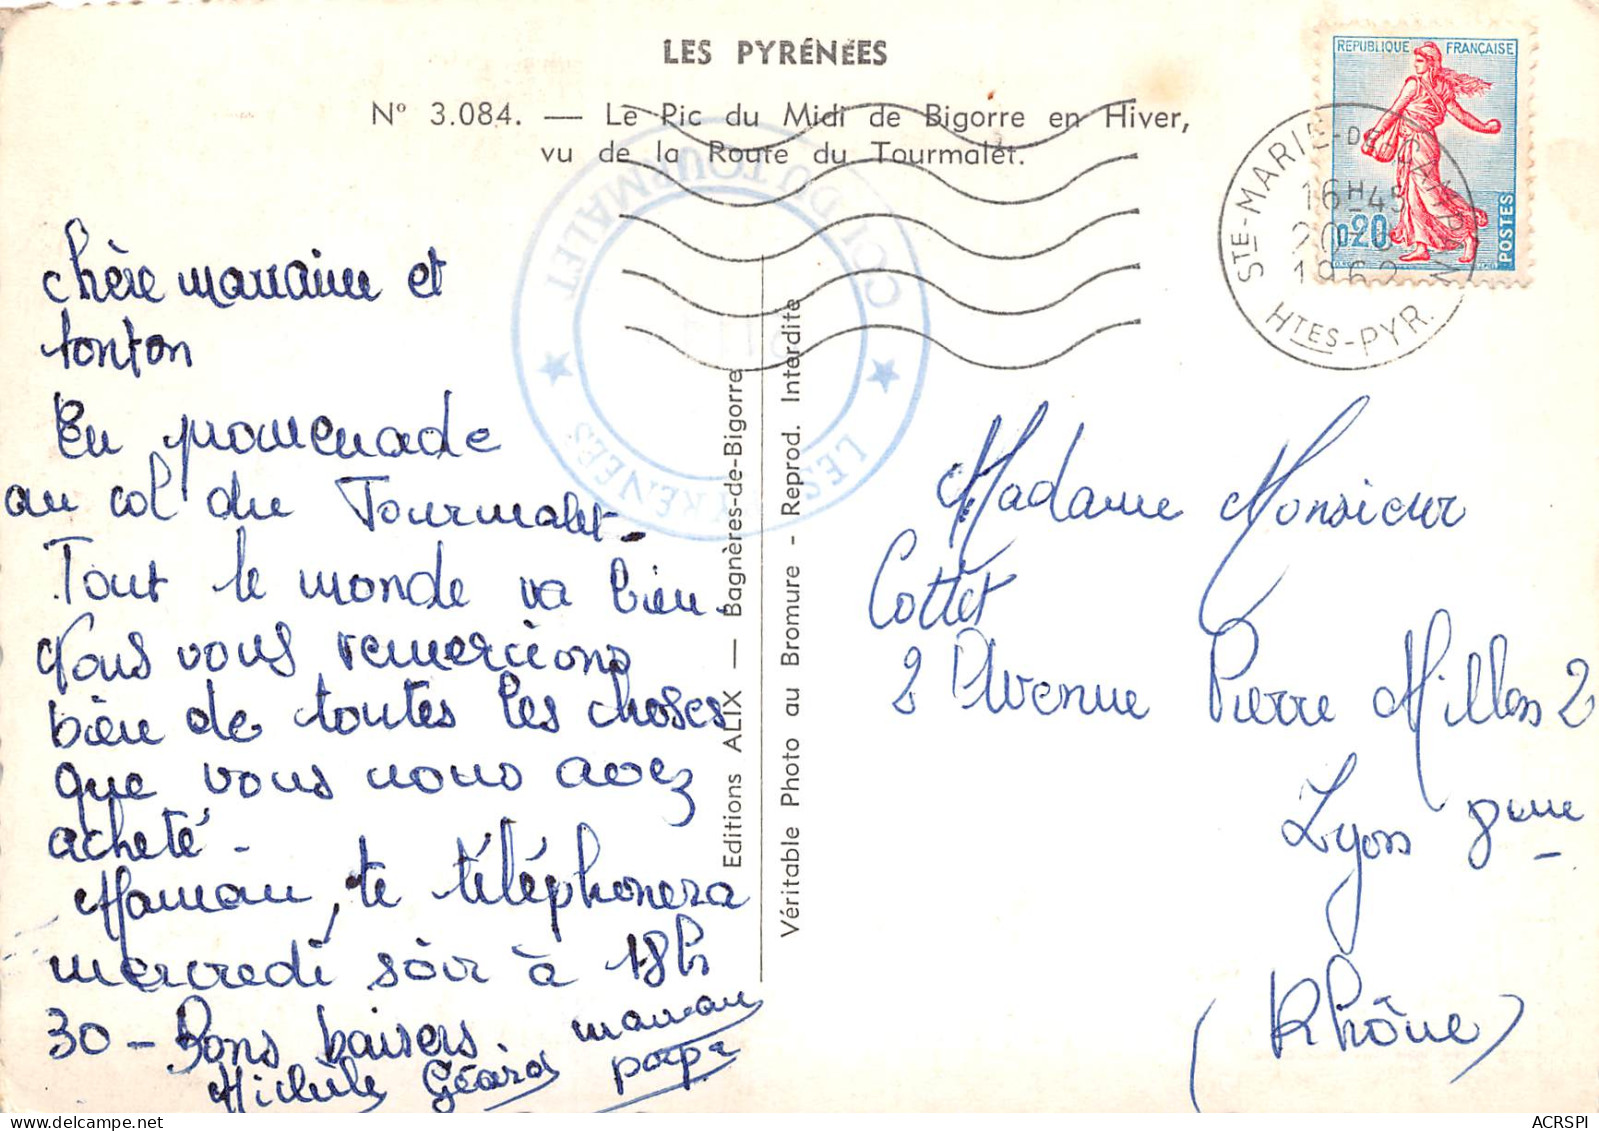 LES PYRÉNÉES
N° 3.084. — Le Pic du Midi de Bigorre en Hiver,
vu de la Route du Tourmalet.
REPUBLIQUE FRANÇAISE
0,20
POSTES
STE-MARIE-DE-CAMPAN
16H45
1960
HTES-PYR.
COL DU TOURMALET
★ LES PYRÉNÉES ★
chère marraine et
tonton
En promenade
au col du Tourmalet -
Tout le monde va bien.
Nous vous remercions
bien de toutes les choses
que vous nous avez
acheté -
Maman, te téléphonera
mercredi soir à 18h
30 - Bons baisers. maman
Michèle Gérard papa
Editions ALIX — Bagnères-de-Bigorre
Véritable Photo au Bromure - Reprod. Interdite
Madame Monsieur
Cottet
2 Avenue Pierre Millon 2
Lyon 8eme
(Rhône)
ACRSPI